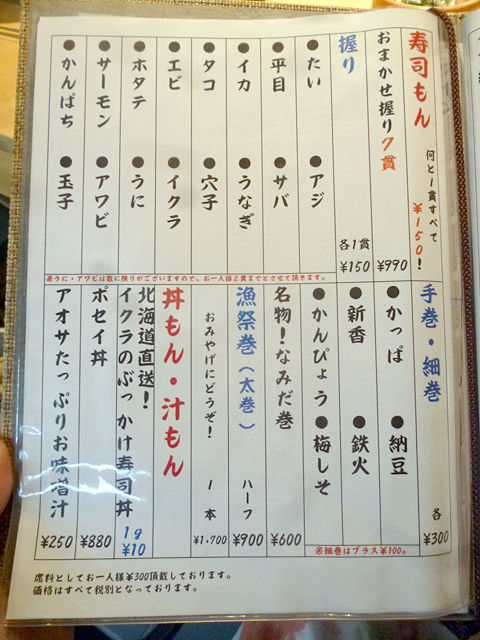 寿司もん 何と1貫すべて¥150!
おまかせ握り7貫 ¥990
握り 各1貫 ¥150
●たい ●アジ
●平目 ●サバ
●イカ ●うなぎ
●タコ ●穴子
●エビ ●イクラ
●ホタテ ●うに
●サーモン ●アワビ
●かんぱち ●玉子
※うに・アワビは数に限りがございますので、お一人様2貫までとさせて頂きます。
手巻・細巻 各¥300
●かっぱ ●納豆
●新香 ●鉄火
●かんぴょう ●梅しそ
※細巻はプラス¥100。
名物!なみだ巻 ¥600
漁祭巻(太巻) ハーフ ¥900
おみやげにどうぞ! 1本 ¥1,700
丼もん・汁もん
北海道直送!
イクラのぶっかけ寿司丼 1g ¥10
ポセイ丼 ¥880
アオサたっぷりお味噌汁 ¥250
席料としてお一人様¥300頂戴しております。
価格はすべて税別となっております。